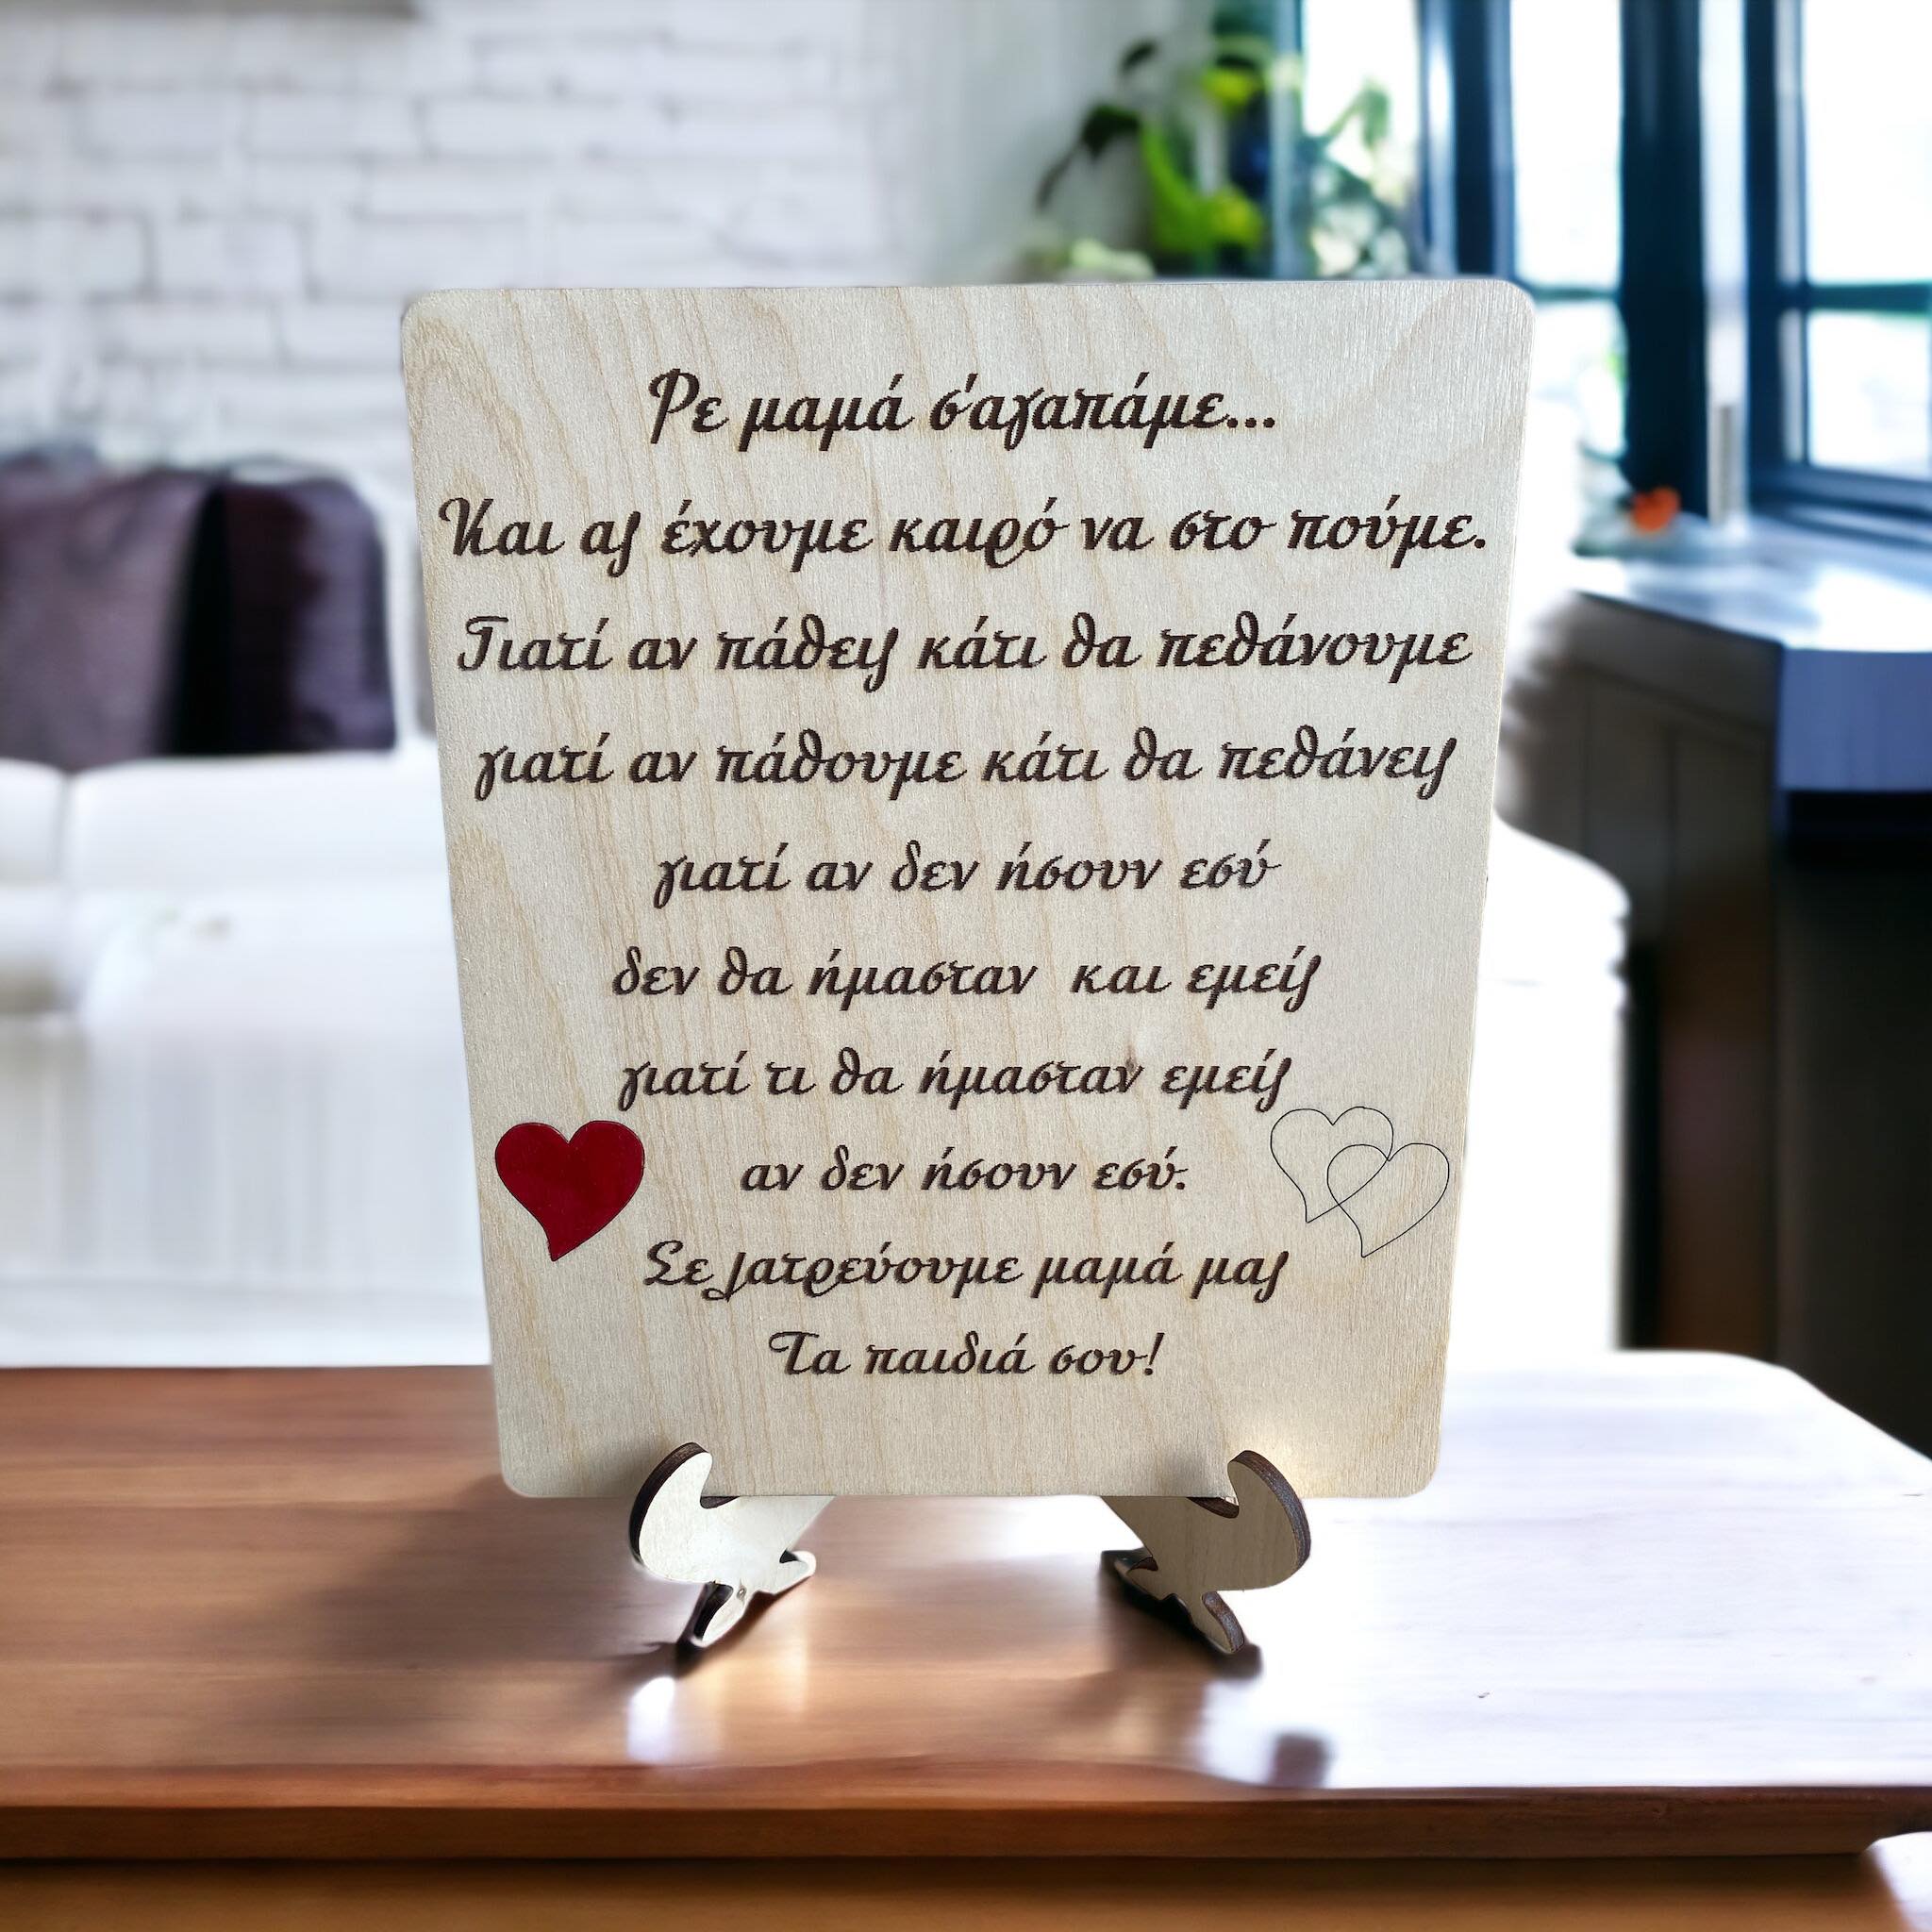 Ρε μαμά σ'αγαπάμε...
Και ας έχουμε καιρό να στο πούμε.
Γιατί αν πάθεις κάτι θα πεθάνουμε
γιατί αν πάθουμε κάτι θα πεθάνεις
γιατί αν δεν ήσουν εσύ
δεν θα ήμασταν και εμείς
γιατί τι θα ήμασταν εμείς
αν δεν ήσουν εσύ.
Σε λατρεύουμε μαμά μας
Τα παιδιά σου!